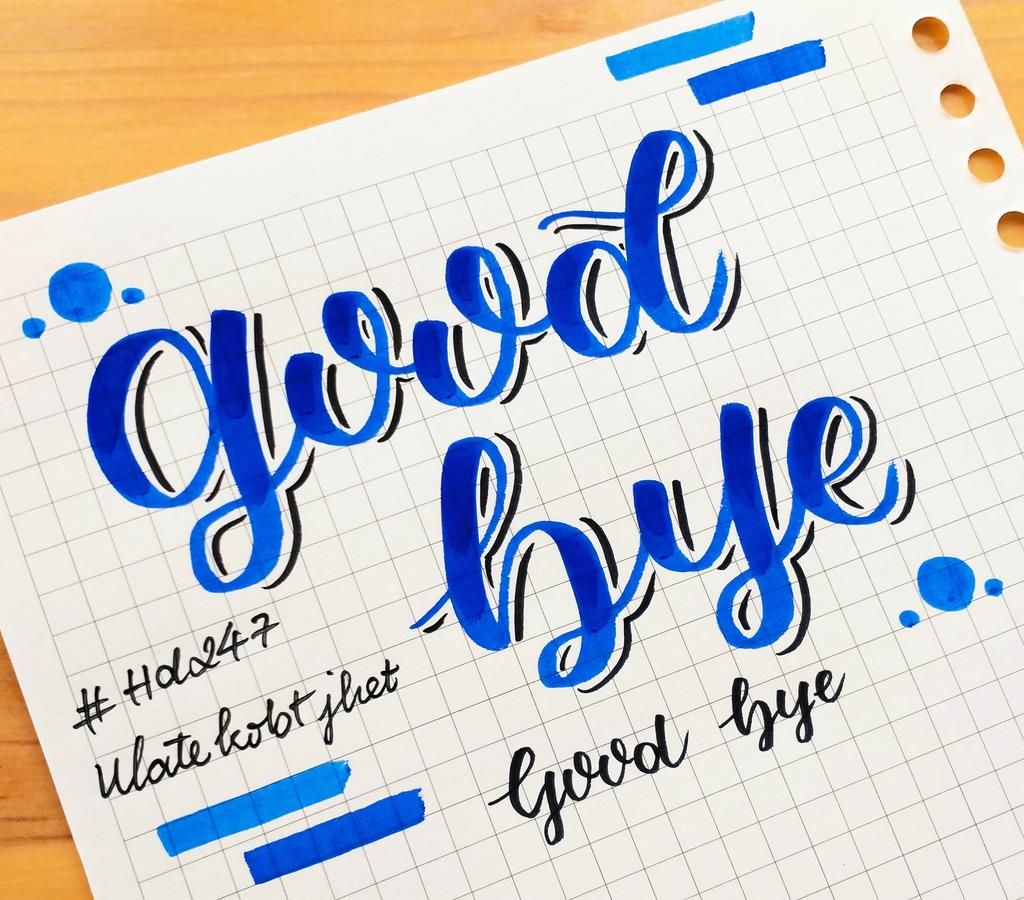 good
bye
# Hd247
Ulate kobt jhet
Good bye